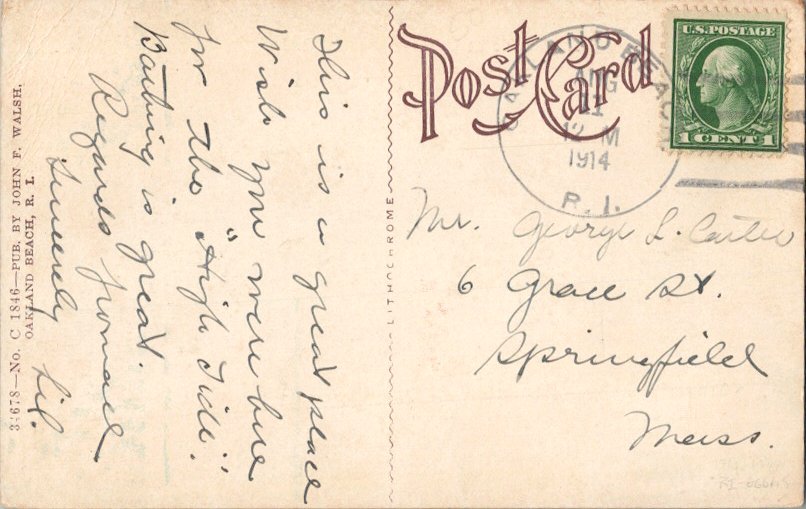 This is a great place
Wish you were here
for the "High Tide".
Bathing is great.
Regards from all
Sincerely
Lil.
34678—No. C 1846—PUB. BY JOHN F. WALSH,
OAKLAND BEACH, R. I.
LITHOCHROME
Post Card
OAKLAND BEACH
AUG
12 M
1914
R. I.
U.S. POSTAGE
1 CENT 1
Mr. George L. Carter
6 Grace St.
Springfield
Mass.